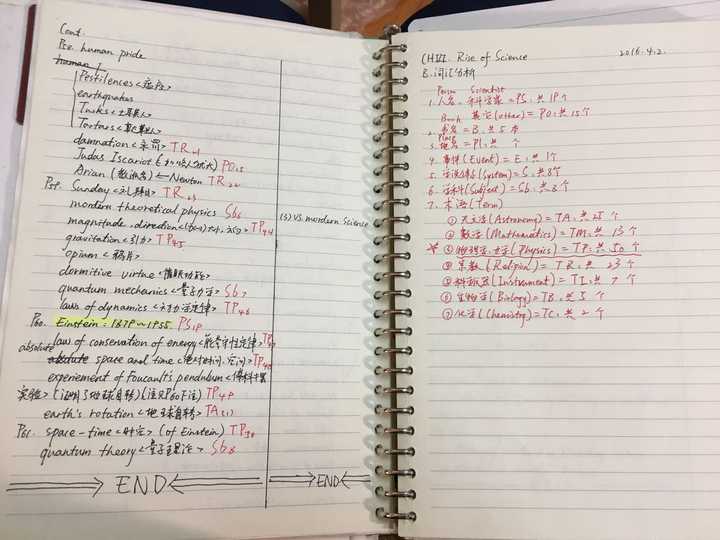 Cont.
P58. human pride
Pestilences <瘟疫>
earthquakes
Turks <土耳其人>
Tartars <鞑靼人>
damnation <永罚> TR21
Judas Iscariot PO15
Arian ← Newton TR22
P59. Sunday <礼拜日> TR23
mordern theoretical physics Sb6
magnitude, direction TP44
gravitation <引力> TP45
opium <鸦片>
dormitive virtue <催眠功效>
quantum mechanics <量子力学> Sb7
laws of dynamics <动力学定律> TP46
P60. Einstein: 1879~1955. PS19
law of conservation of energy <能量守恒定律> TP47
absolute space and time <绝对时间、空间> TP48
experiement of Foucault's pendulum <傅科摆
实验> (证明了地球自转) (注见P60下注) TP49
earth's rotation <地球自转> TA25
P61. space-time <时空> (of Einstein) TP50
quantum theory <量子理论> Sb8
END
(3) VS. mordern Science
END
CH VI. Rise of Science 2016.4.2.
B. 词汇分析
Person Scientist
1. 人名, 科学家 = PS, 共19个
其它(other) = PO, 共15个
Book
2. 书名 = B, 共5本
Place
3. 地名 = Pl, 共 个
4. 事件(Event) = E, 共1个
5. 学说体系(System) = S, 共8个
6. 学科(Subject) = Sb, 共8个
7. 术语(Term)
① 天文学(Astronomy) = TA, 共25个
② 数学(Mathematics) = TM, 共13个
③ 物理学、力学(Physics) = TP, 共50个
④ 宗教(Religion) = TR, 共23个
⑤ 科学仪器(Instrument) = TI, 共7个
⑥ 生物学(Biology) = TB, 共5个
⑦ 化学(Chemistry) = TC, 共2个